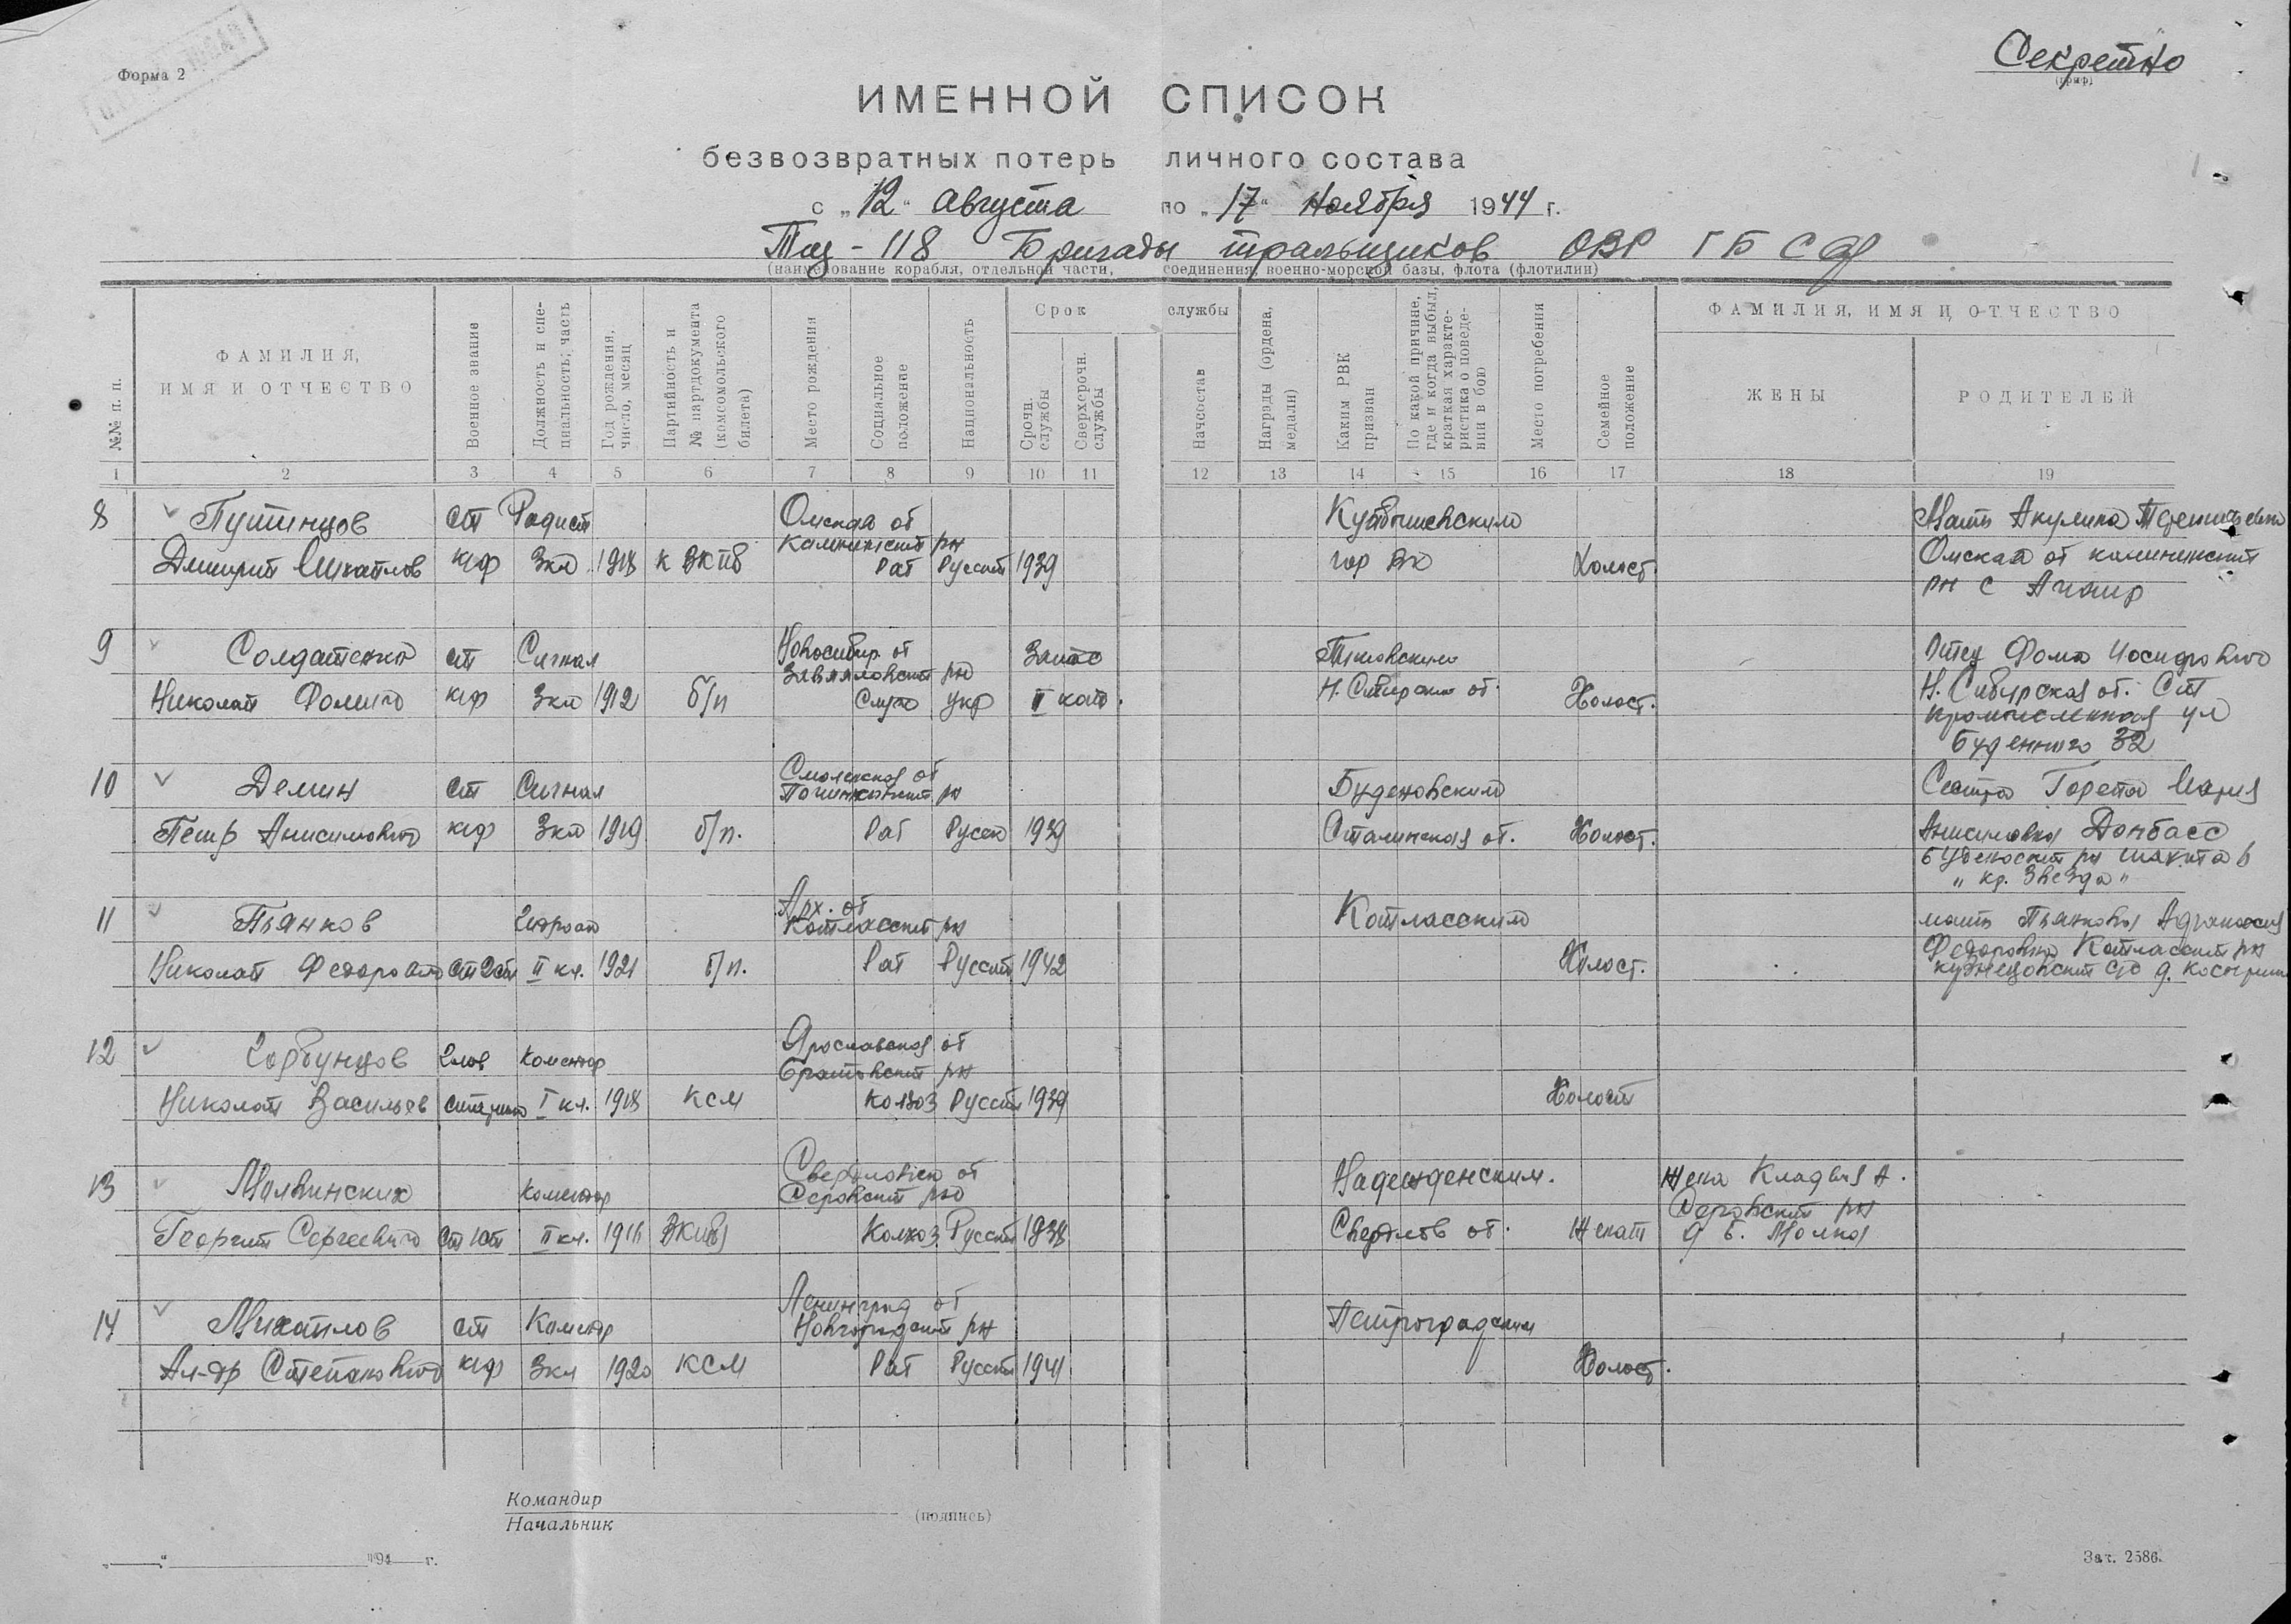 Форма 2
Секретно
(гриф)
ИМЕННОЙ СПИСОК
безвозвратных потерь личного состава
с „12“ августа по „17“ ноября 1944 г.
Тщ-118 Бригады тральщиков ОВР ГБ СФ
(наименование корабля, отдельной части, соединения, военно-морской базы, флота (флотилии)
№№ п. п.
ФАМИЛИЯ,
ИМЯ И ОТЧЕСТВО
Военное звание
Должность и спе-
циальность; часть
Год рождения,
число, месяц
Партийность и
№ партдокумента
(комсомольского
билета)
Место рождения
Социальное
положение
Национальность
Срок службы
Срочн.
службы
Сверхсрочн.
службы
Начсостав
Награды (ордена,
медали)
Каким РВК
призван
По какой причине,
где и когда выбыл,
краткая характе-
ристика о поведе-
нии в бою
Место погребения
Семейное
положение
ФАМИЛИЯ, ИМЯ И ОТЧЕСТВО
ЖЕНЫ
РОДИТЕЛЕЙ
1 2 3 4 5 6 7 8 9 10 11 12 13 14 15 16 17 18 19
8 Путинцов ст Радист Омская об Куйбышевским Мать Акулина
Калининский рн
Дмитрий Михайлов кф 3кл 1918 к ВКПб Раб Русский 1939 гор ВК Холост Омская об калининский
рн с Ачаир
9 Солдатенко ст Сигнал Новосибир. об Запас Отец Фома
Завьяловский рн
Николай Фомич кф 3кл 1912 б/п Служ укр II кат. Н. Сибирской об. Холост. Н. Сибурская об. Ст
Промышленная ул
Буденного 32
10 Демин ст Сигнал Смоленская об Буденовским Сестра Мария
Починковский рн
Петр Анисимович кф 3кл 1919 б/п. Раб Русск 1939 Сталинская об. Холост. Анисимовна Донбасс
Буденоский рн шахта
„ кр. Звезда "
11 Пьянков Арх. об Котласским мать Пьянкова
Котласский рн
Николай Федорович ст 2ст II кл. 1921 б/п. Раб Русский 1942 Холост. Федоровна Котласский рн
кузнецовский с/с д.
12 Горбунцов Глав комендор Ярославская об
Николай Васильев старшина I кл. 1918 КСМ колхоз Русский 1939 Холост
13 Молвинских комендор Свердловск об Надежденским. жена Кладвия А.
Серовский рн Серовский рн
Георгий Сергеевич ст 1ст II кл. 1916 ВКПб Колхоз Русский 1938 Свердлов об. Женат д Б. Молва
14 Михайлов ст Коменор Ленинград об Петроградским
Новгородский рн
Ал-др Степанович кф 3кл 1920 КСМ Раб Русский 1941 Холост.
Командир
Начальник
(подпись)
„ “ 194 г.
Зак. 2586.